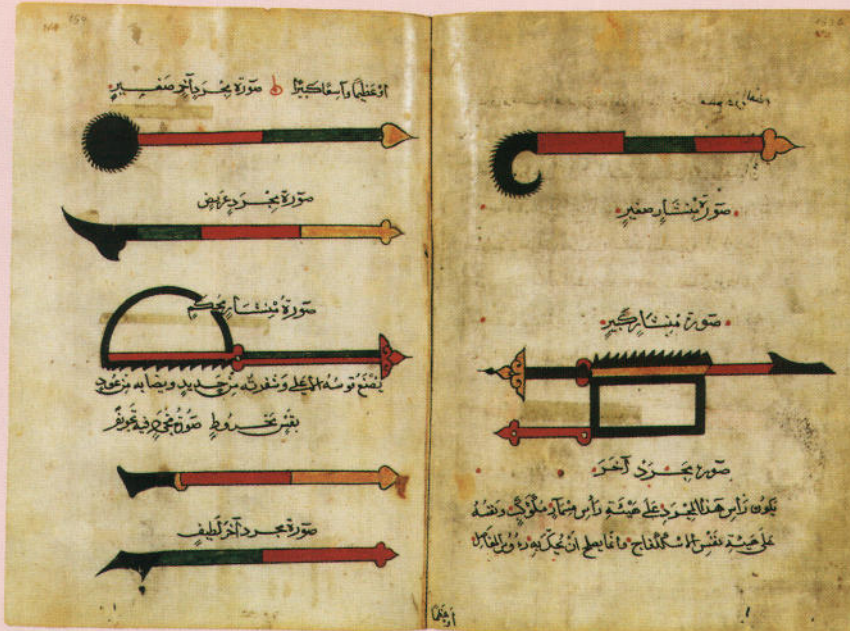 صورة منشار صغير
صورة منشار كبير
صورة مجرد آخر
يكون رأس هذا المجرد على هيئة رأس مسمار مكوكب ونقشه
على هيئة نقش الاسكلفاج وانما يصلح ان يحك به رءوس المفاصل
أو عظيما
أو عظيما واسعا كبيرا صورة مجرد آخر صغير
صورة مجرد عريض
صورة منشار محكم
يصنع قوسه الاعلى وشفرته من حديد ونصابه من عود
بقس مخروط صورة مجرد فيه تجويف
صورة مجرد آخر لطيف